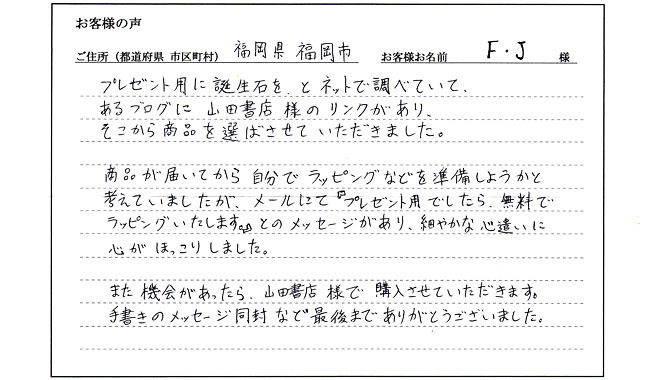 お客様の声
ご住所（都道府県 市区町村） 福岡県 福岡市 お客様お名前 F・J 様
プレゼント用に誕生石を、とネットで調べていて、
あるブログに 山田書店 様のリンクがあり、
そこから商品を選ばさせていただきました。
商品が届いてから自分でラッピングなどを準備しようかと
考えていましたが、メールにて『プレゼント用でしたら、無料で
ラッピングいたします。』とのメッセージがあり、細やかな心遣いに
心がほっこりしました。
また機会があったら、山田書店 様で購入させていただきます。
手書きのメッセージ同封など最後までありがとうございました。